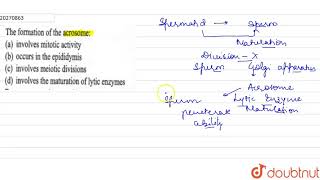 20270863
The formation of the acrosome:
(a) involves mitotic activity
(b) occurs in the epididymis
(c) involves meiotic divisions
(d) involves the maturation of lytic enzymes
Spermatid → Sperm
Maturation
Division - X
Sperm Golgi apparatus
Sperm Acrosome
Lytic Enzyme
penetrate Maturation
ability
doubtnut